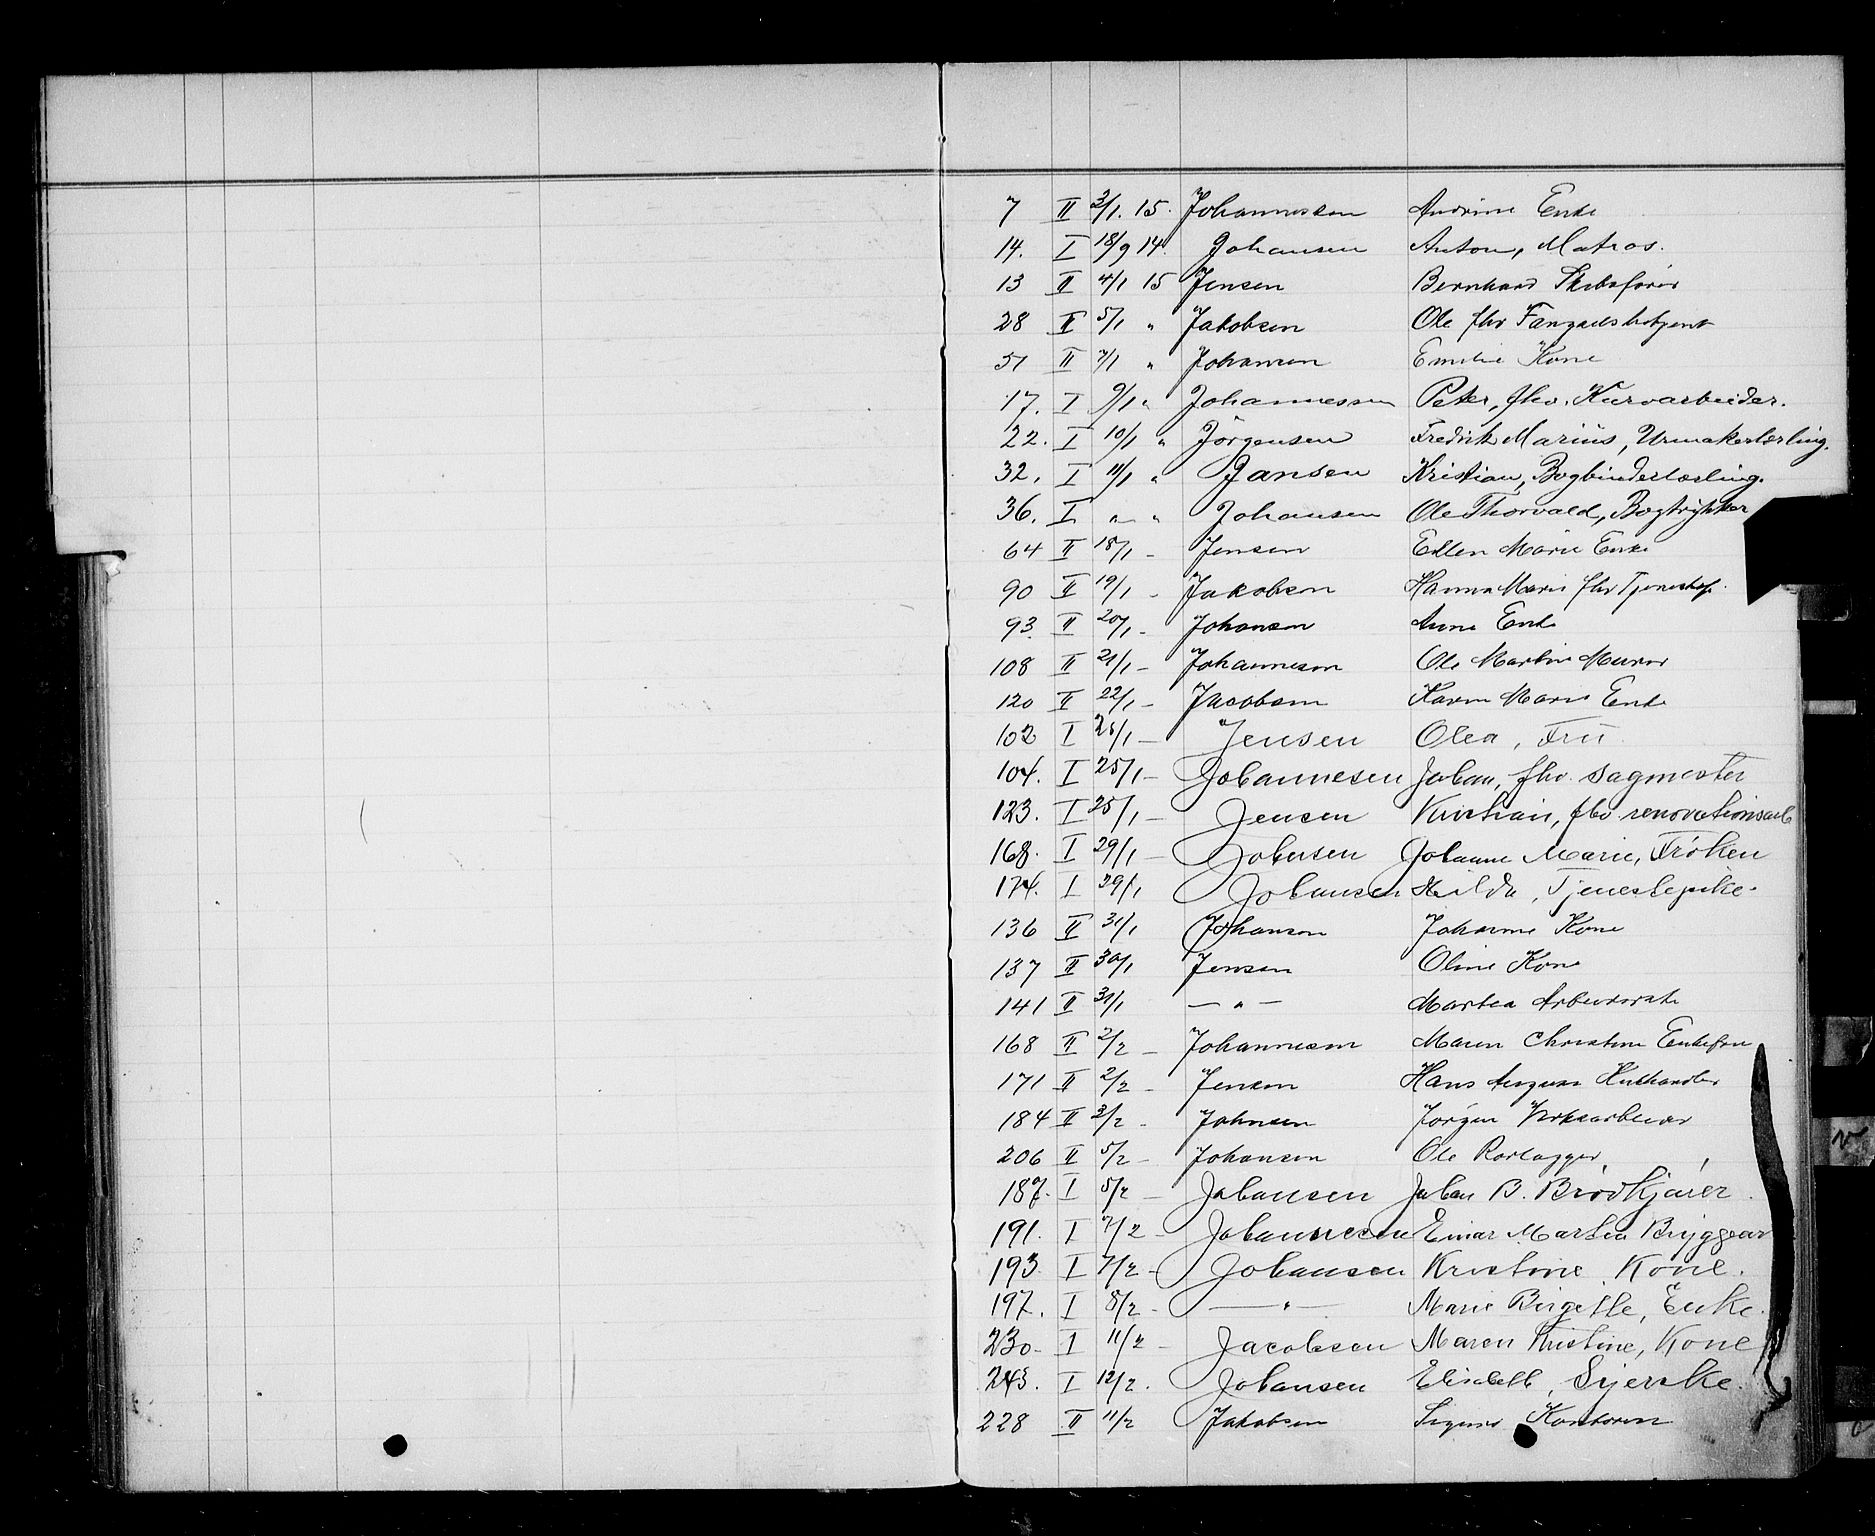 7 II 3/1. 15. Johannessen Andrine Enke
14. I 18/9 14. Johansen Anton, Matros.
13 II 4/1 15 Jensen Bernhard Skibsfører
28 II 5/1 " Jakobsen Ole fhv Fangselsbetjent
51 II 7/1 " Johansen Emilie Kone
17. I 9/1 " Johannessen Peter, fhv. Kurvarbeider.
22. I 10/1 " Jörgensen Fredrik Marius, Urmakerlærling.
32. I 11/1 " Jansen Kristian, Bogbinderlærling.
36. I " " Johansen Ole Thorvald, Bogtrykker
64 II 18/1 - Jensen Ellen Marie Enke
90 II 19/1 - Jakobsen Hanna Marie fhv Tjenestep.
93 II 20/1 - Johansen Anne Enke
108 II 21/1 - Johannesen Ole Martin Murer
120 II 22/1 - Jacobsen Karen Marie Enke
102 I 25/1 - Jensen Olea, Fru
104. I 25/1 - Johannesen Johan, fhv. sagmester
123. I 25/1 - Jensen Kristian, fhv renovationsarb
168. I 29/1 - Johnsen Johanne Marie, Frøken
174. I 29/1 Johansen Hilda, Tjenestepike.
136 II 31/1 Johansen Johanne Kone
137 II 30/1 Jensen Oline Kone
141 II 31/1 — " — Marthea Arbeiderske
168 II 2/2 - Johannesen Maren Christine Enkefru
171 II 2/2 - Jensen August Hans
184 II 3/2 - Johnsen Jørgen Verksarbeider
206 II 5/2 - Johansen Ole Rørlægger
187. I 5/2 - Johansen Johan B. Brødkjører.
191. I 7/2 - Johannesen Einar Martin Bryggearb
193 I 7/2 - Johansen Kristine, Kone.
197. I 8/2 - — " — Marie Birgette, Enke.
230 - I 11/2 - Jacobsen Maren Kristine, Kone
243. I 12/2. Johansen Elisabeth, Syerske.
228 II 11/2 Jakobsen Kontorist